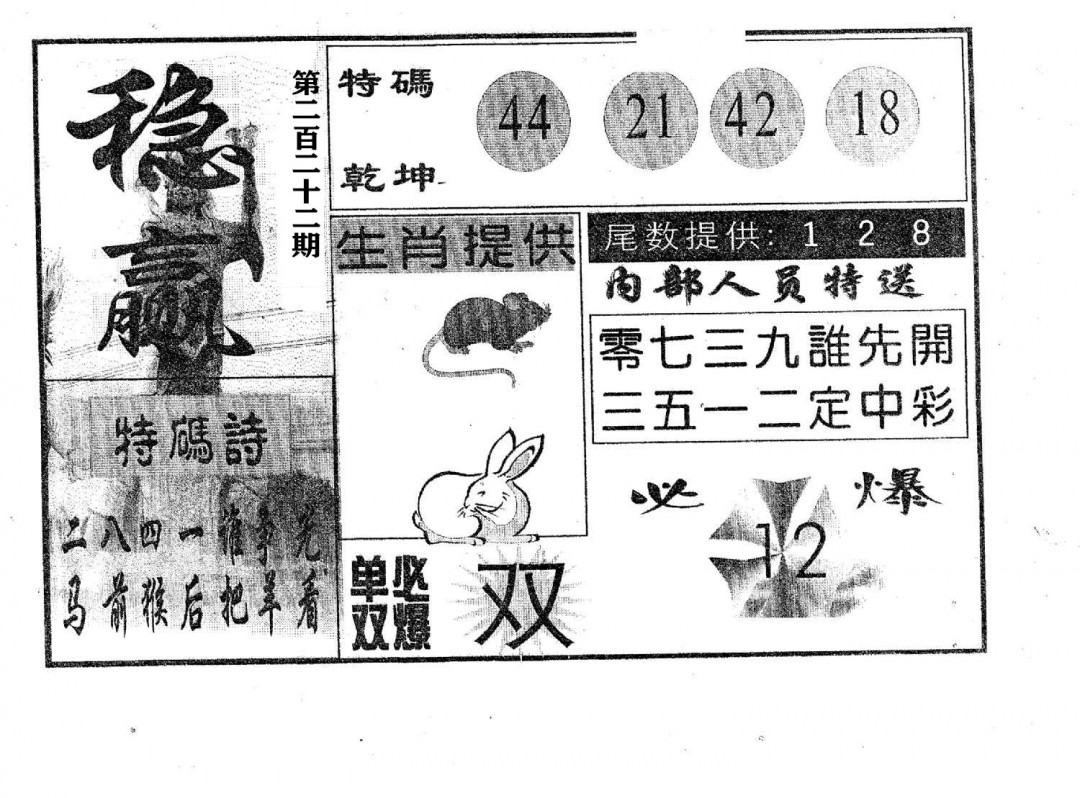 稳赢
第二百二十二期
特碼
乾坤
44 21 42 18
生肖提供
尾数提供: 1 2 8
内部人员特送
零七三九誰先開
三五一二定中彩
特碼詩
二八四一谁争先
马前猴后把羊看
单双必爆
双
必爆
12